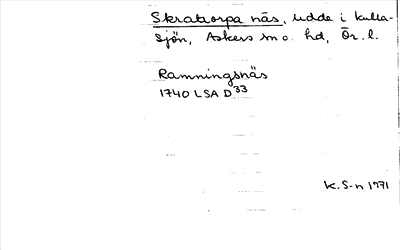 Skratorpa näs, udde i Kulla-
sjön, Askers sn o. hd, Ör. l.
Ramningsnäs
1740 LSA D 33
K. S-n 1971